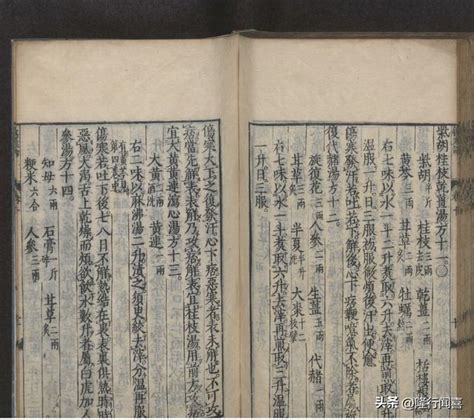 柴胡桂枝乾薑湯方十一。
柴胡半斤 桂枝三兩 乾薑二兩 栝樓根
黃芩三兩 甘草二兩 牡蠣二兩
右七味以水一斗二升煮取六升去滓再煎取三升溫
服一升日三服初服微煩後汗出便愈
傷寒若吐若下解後心下痞鞕噫氣不除者屬旋
復代赭湯方十二。
旋復花三兩 人參二兩 生薑五兩 代赭一兩
甘草三兩 半夏半升 大棗
右七味以水一斗煮取六升去滓再煎取三升溫服
一升日三服
傷寒大下之復發汗心下痞惡寒者表未解也不可攻
痞當先解表表解乃攻痞解表宜桂枝湯用前方攻痞
宜大黃黃連瀉心湯方十三。
大黃二兩酒洗 黃連一兩
右二味以麻沸湯二升漬之須臾絞去滓分溫再服
有黃芩第四卷中
傷寒若吐若下後七八日不解熱結在裏表裏俱熱時時
惡風大渴舌上乾燥而煩欲飲水數升者屬白虎加人
參湯方十四。
知母六兩 石膏一斤碎 甘草二兩
粳米六合 人參三兩
头条 @隆行闻喜